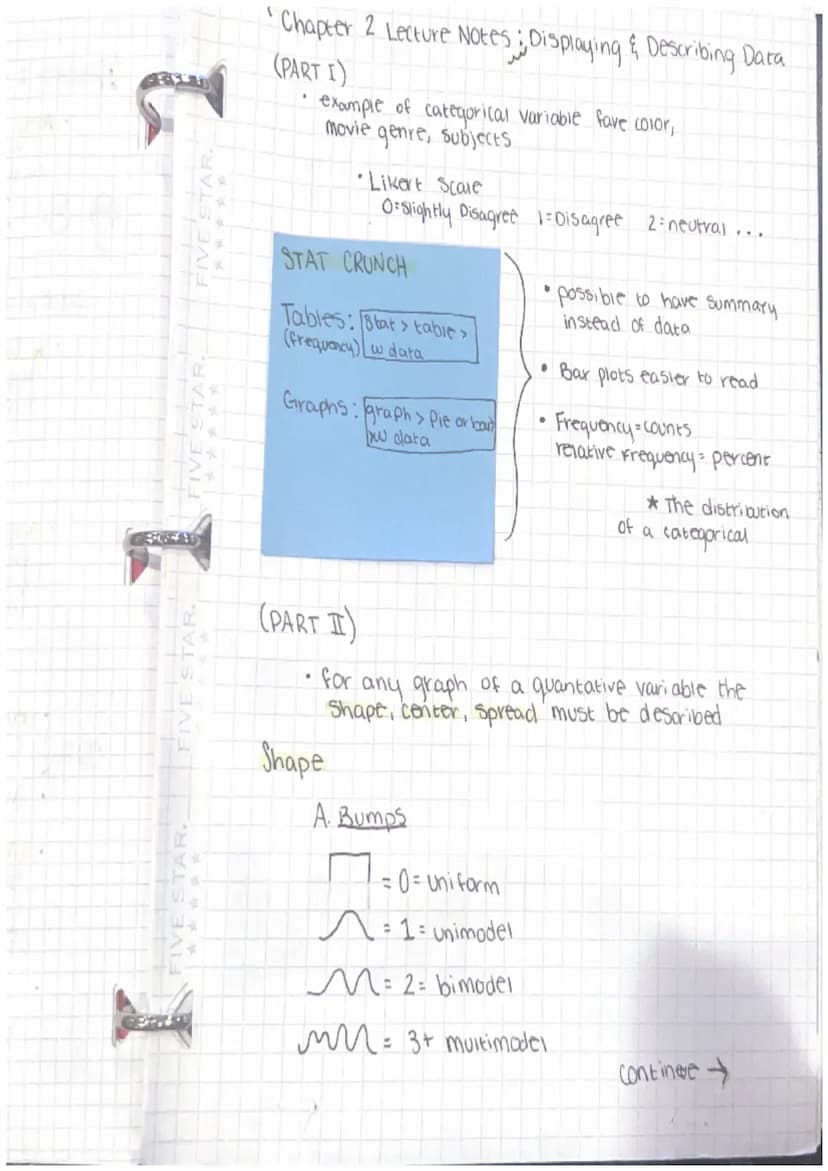 Chapter 2 Lecture Notes ; Displaying & Describing Data
(PART I)
• example of categorical variable fave color,
movie genre, subjects
• Likert Scale
0=Slightly Disagree 1=Disagree 2=neutral ...
STAT CRUNCH
Tables: Stat > table >
(frequency) w data
Graphs: graph > Pie or bar
w data
• possible to have summary
instead of data
• Bar plots easier to read
• Frequency=counts
relative Frequency= percent
★ The distribution
of a categorical
(PART II)
• for any graph of a quantative variable the
shape, center, spread must be described
Shape
A. Bumps
= 0= uniform
= 1= unimodel
= 2= bimodel
= 3+ multimodel
continue →
FIVE STAR.
FIVE STAR.
FIVE STAR.
FIVE STAR.